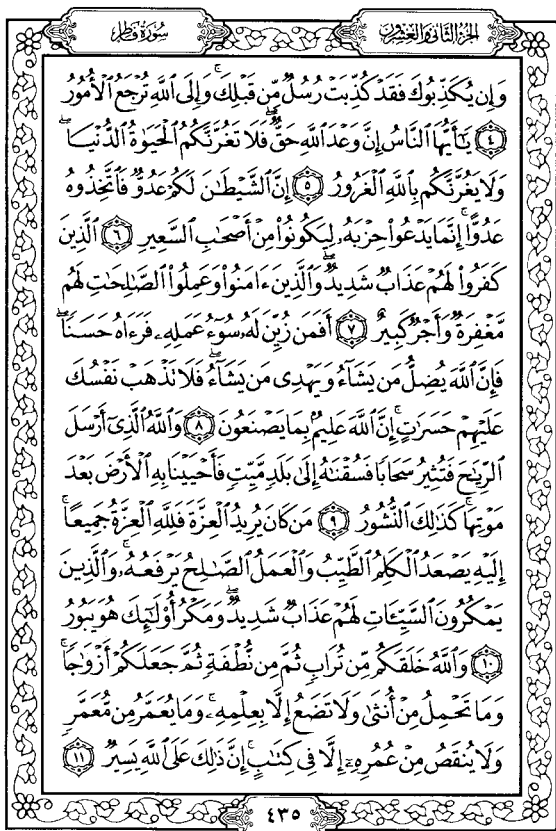 الجزء الثاني والعشرون
سورة فاطر
وَإِن يُكَذِّبُوكَ فَقَدْ كُذِّبَتْ رُسُلٌ مِّن قَبْلِكَ ۚ وَإِلَى ٱللَّهِ تُرْجَعُ ٱلْأُمُورُ
﴿٤﴾ يَـٰٓأَيُّهَا ٱلنَّاسُ إِنَّ وَعْدَ ٱللَّهِ حَقٌّ ۖ فَلَا تَغُرَّنَّكُمُ ٱلْحَيَوٰةُ ٱلدُّنْيَا ۖ
وَلَا يَغُرَّنَّكُم بِٱللَّهِ ٱلْغَرُورُ ﴿٥﴾ إِنَّ ٱلشَّيْطَـٰنَ لَكُمْ عَدُوٌّ فَٱتَّخِذُوهُ
عَدُوًّا ۚ إِنَّمَا يَدْعُوا۟ حِزْبَهُۥ لِيَكُونُوا۟ مِنْ أَصْحَـٰبِ ٱلسَّعِيرِ ﴿٦﴾ ٱلَّذِينَ
كَفَرُوا۟ لَهُمْ عَذَابٌ شَدِيدٌ ۖ وَٱلَّذِينَ ءَامَنُوا۟ وَعَمِلُوا۟ ٱلصَّـٰلِحَـٰتِ لَهُم
مَّغْفِرَةٌ وَأَجْرٌ كَبِيرٌ ﴿٧﴾ أَفَمَن زُيِّنَ لَهُۥ سُوٓءُ عَمَلِهِۦ فَرَءَاهُ حَسَنًا ۖ
فَإِنَّ ٱللَّهَ يُضِلُّ مَن يَشَآءُ وَيَهْدِى مَن يَشَآءُ ۖ فَلَا تَذْهَبْ نَفْسُكَ
عَلَيْهِمْ حَسَرَٰتٍ ۚ إِنَّ ٱللَّهَ عَلِيمٌۢ بِمَا يَصْنَعُونَ ﴿٨﴾ وَٱللَّهُ ٱلَّذِىٓ أَرْسَلَ
ٱلرِّيَـٰحَ فَتُثِيرُ سَحَابًا فَسُقْنَـٰهُ إِلَىٰ بَلَدٍ مَّيِّتٍ فَأَحْيَيْنَا بِهِ ٱلْأَرْضَ بَعْدَ
مَوْتِهَا ۚ كَذَٰلِكَ ٱلنُّشُورُ ﴿٩﴾ مَن كَانَ يُرِيدُ ٱلْعِزَّةَ فَلِلَّهِ ٱلْعِزَّةُ جَمِيعًا ۚ
إِلَيْهِ يَصْعَدُ ٱلْكَلِمُ ٱلطَّيِّبُ وَٱلْعَمَلُ ٱلصَّـٰلِحُ يَرْفَعُهُۥ ۚ وَٱلَّذِينَ
يَمْكُرُونَ ٱلسَّيِّـَٔاتِ لَهُمْ عَذَابٌ شَدِيدٌ ۖ وَمَكْرُ أُو۟لَـٰٓئِكَ هُوَ يَبُورُ
﴿١٠﴾ وَٱللَّهُ خَلَقَكُم مِّن تُرَابٍ ثُمَّ مِن نُّطْفَةٍ ثُمَّ جَعَلَكُمْ أَزْوَٰجًا ۚ
وَمَا تَحْمِلُ مِنْ أُنثَىٰ وَلَا تَضَعُ إِلَّا بِعِلْمِهِۦ ۚ وَمَا يُعَمَّرُ مِن مُّعَمَّرٍ
وَلَا يُنقَصُ مِنْ عُمُرِهِۦٓ إِلَّا فِى كِتَـٰبٍ ۚ إِنَّ ذَٰلِكَ عَلَى ٱللَّهِ يَسِيرٌ ﴿١١﴾
٤٣٥